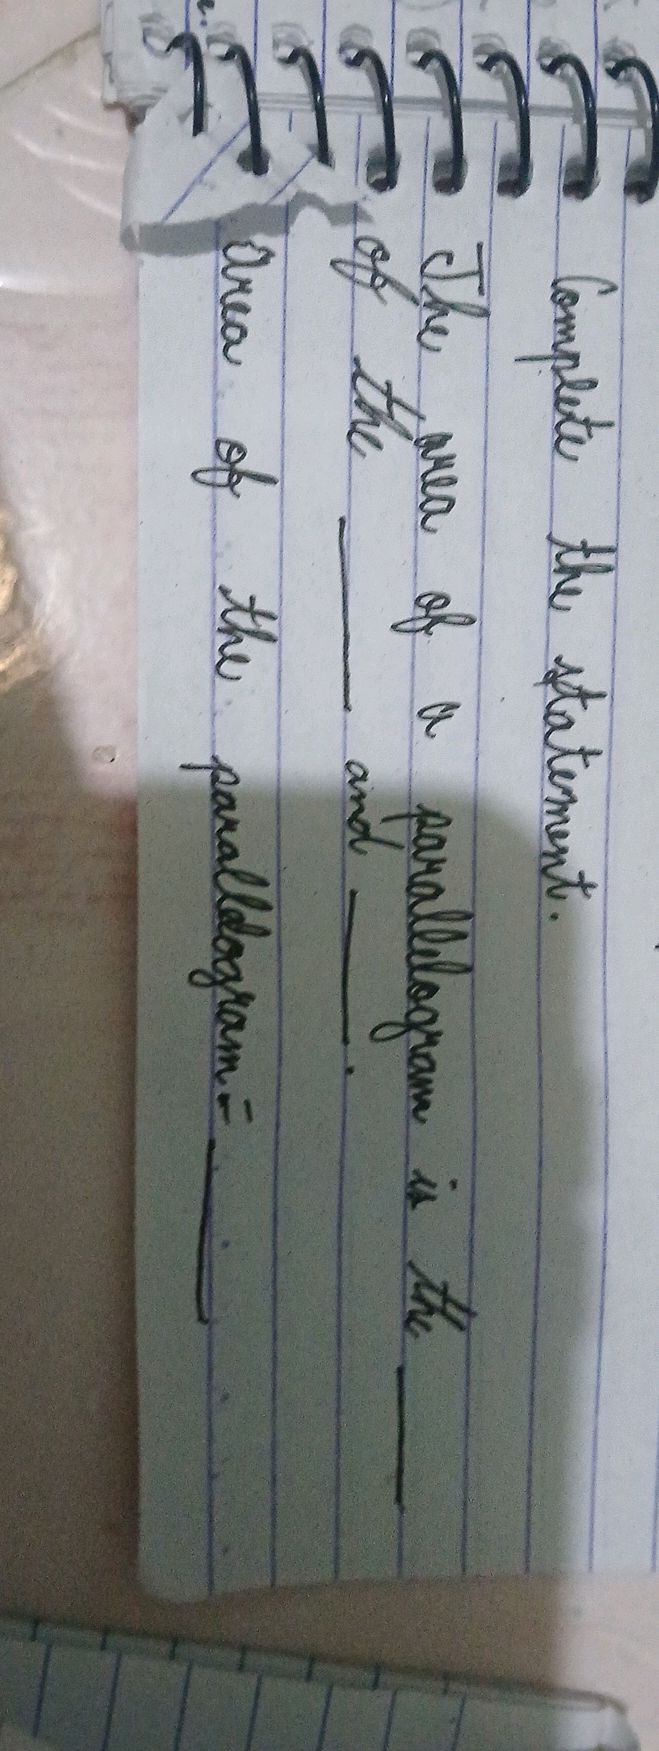 Complete the statement.
The area of a parallelogram is the ______
of the ______ and ______.
area of the parallelogram = ______